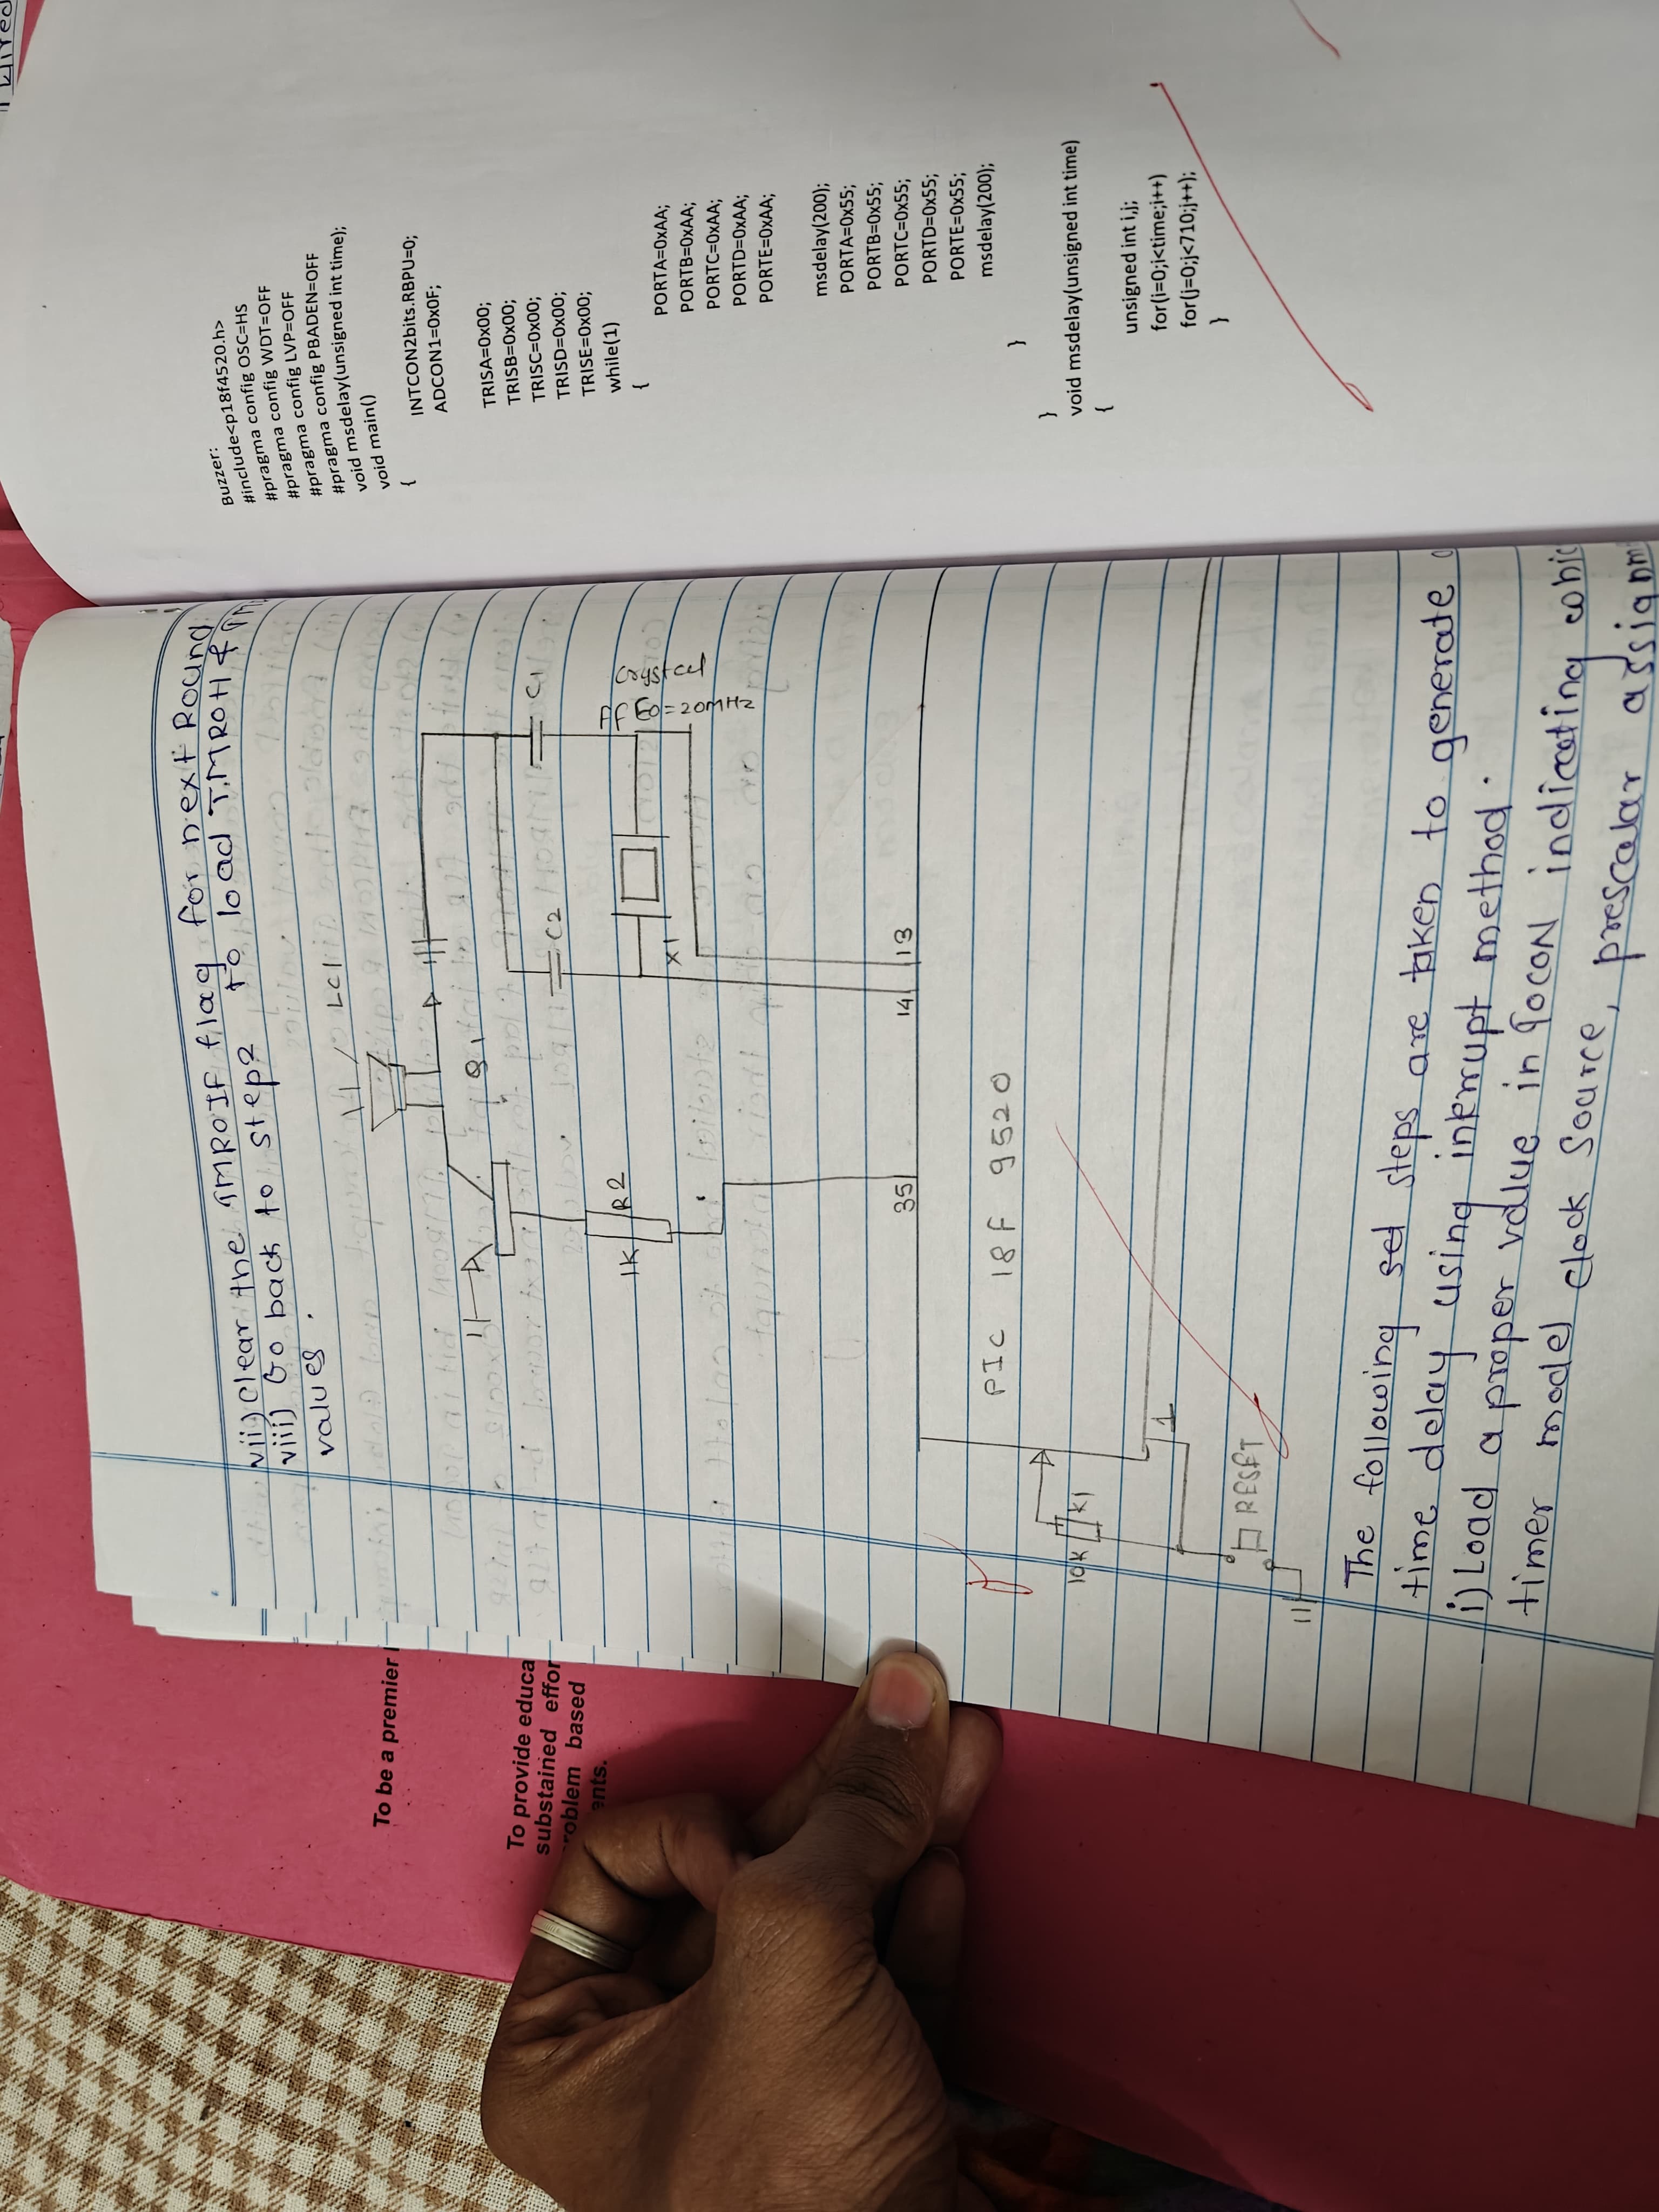 vii) Clear the TMR0IF flag for next Round
viii) Go back to step2 to load TMR0H &
values.
LC1
Q1
C1
C2
Crystal
Eo=20MHz
X1
1K
R2
35
14
13
PIC 18F 9520
10K
K1
1
RESET
The following set steps are taken to generate
time delay using interrupt method.
i) Load a proper value in T0CON indicating
timer model clock source, prescalar
Buzzer:
#include<p18f4520.h>
#pragma config OSC=HS
#pragma config WDT=OFF
#pragma config LVP=OFF
#pragma config PBADEN=OFF
void msdelay(unsigned int time);
void main()
{
INTCON2bits.RBPU=0;
ADCON1=0x0F;
TRISA=0x00;
TRISB=0x00;
TRISC=0x00;
TRISD=0x00;
TRISE=0x00;
while(1)
{
PORTA=0xAA;
PORTB=0xAA;
PORTC=0xAA;
PORTD=0xAA;
PORTE=0xAA;
msdelay(200);
PORTA=0x55;
PORTB=0x55;
PORTC=0x55;
PORTD=0x55;
PORTE=0x55;
msdelay(200);
}
}
void msdelay(unsigned int time)
{
unsigned int i,j;
for(i=0;i<time;i++)
for(j=0;j<710;j++);
}
To be a premier
To provide educa
substained effor
problem based
ents.